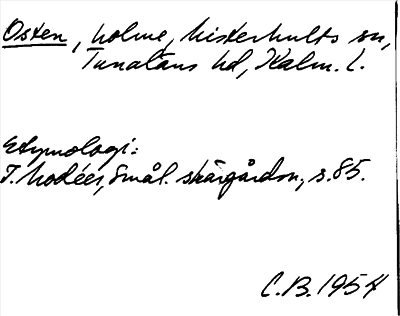 Osten, holme, Misterhults sn,
Tunaläns hd, Kalm. l.
Etymologi:
I. Modéer, Smål. skärgården, s. 85.
C.B. 1954